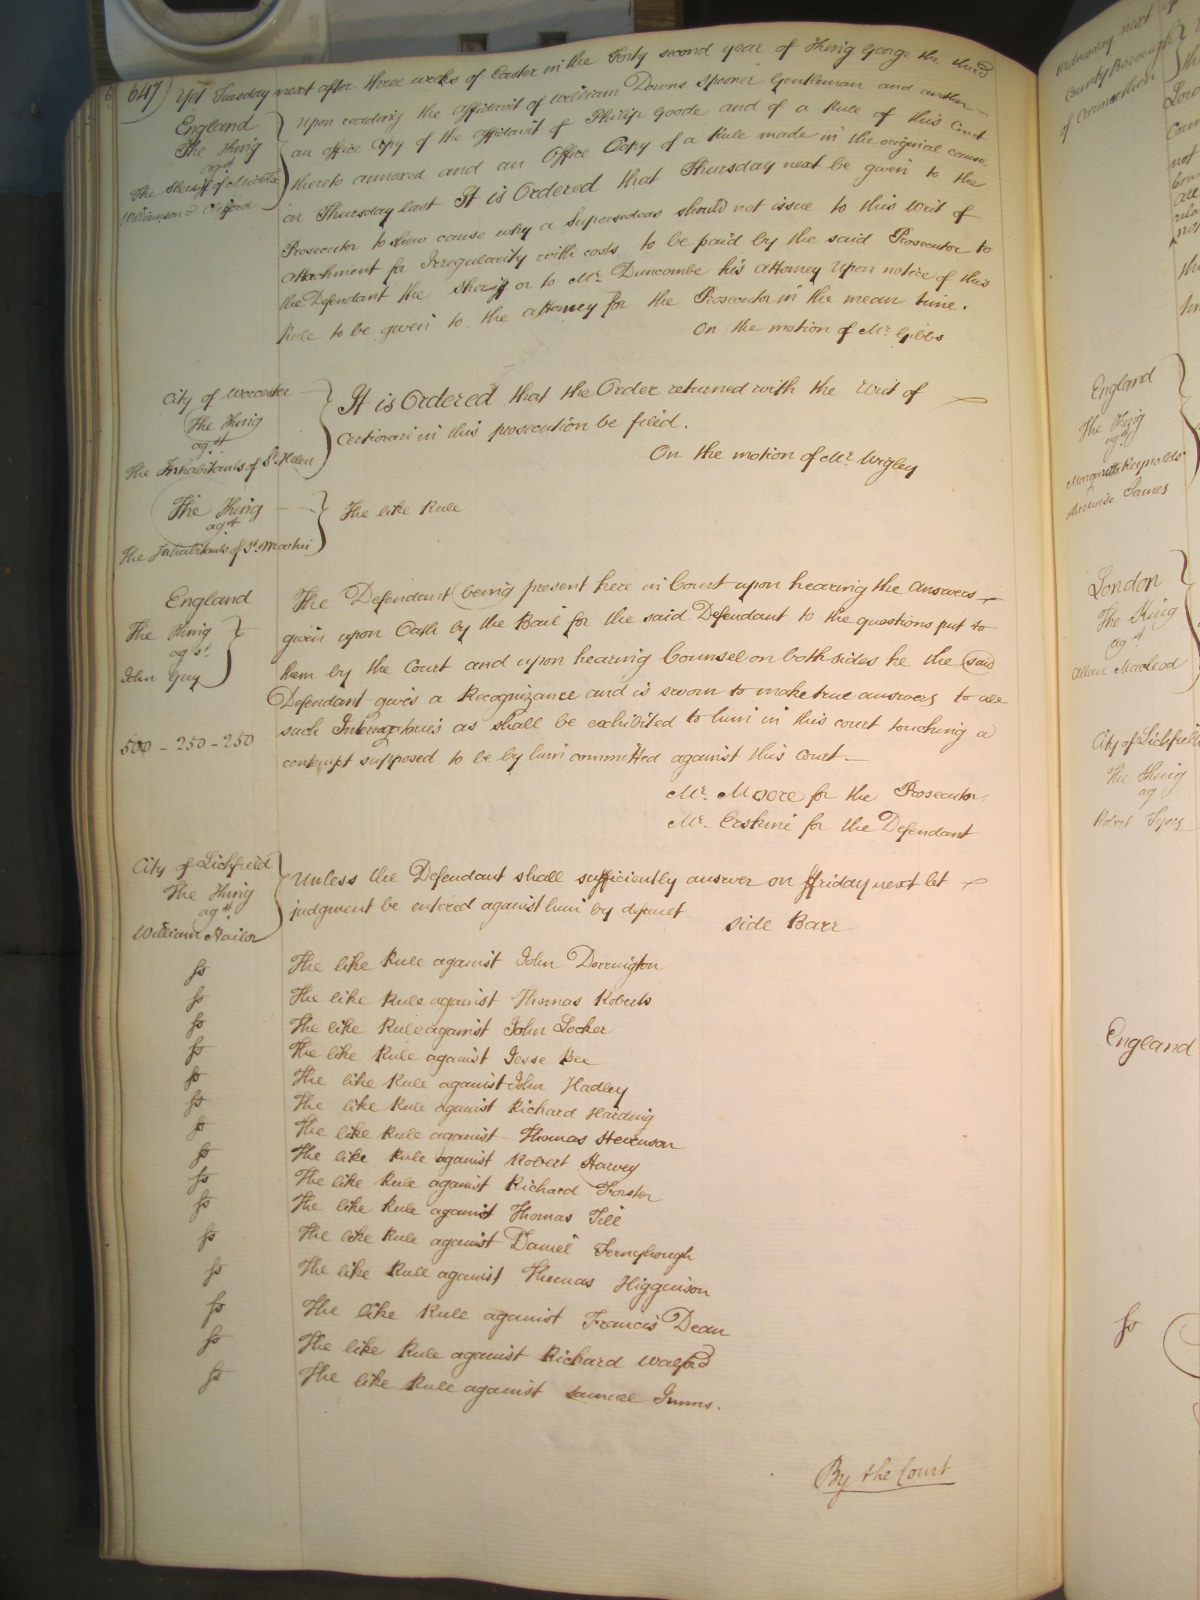 647) Yet Tuesday next after three weeks of Easter in the Forty second year of King George the third
England
The King
agst
The Sheriff of Middx
Upon reading the affidavit of William Downs Spooner Gentleman and another
an office Copy of the affidavit of Philip Goode and of a Rule of this Court
thereto annexed and an Office Copy of a Rule made in the original cause
on Thursday last It is Ordered that Thursday next be given to the
Prosecutor to shew cause why a Supersedeas should not issue to this Writ of
attachment for Irregularity with costs to be paid by the said Prosecutor to
the Defendant the Sheriff or to Mr. Duncombe his attorney Upon notice of this
Rule to be given to the attorney for the Prosecutor in the mean time.
On the motion of Mr. Gibbs
City of Worcester
The King
agst
The Inhabitants of St. Helen
It is Ordered that the Order returned with the Writ of
Certiorari in this prosecution be filed.
On the motion of Mr. Wigley
The King
agst
The Inhabitants of St. Martin
The like Rule
England
The King
agst.
John Guy
500 - 250 - 250
The Defendant being present here in Court upon hearing the answers
given upon Oath by the Bail for the said Defendant to the questions put to
them by the Court and upon hearing Counsel on both sides he the said
Defendant gives a Recognizance and is sworn to make true answers to all
such Interrogatories as shall be exhibited to him in this court touching a
contempt supposed to be by him committed against this Court
Mr. Moore for the Prosecutor
Mr. Erskine for the Defendant
City of Lichfield
The King
agst
William Nailor
Unless the Defendant shall sufficiently answer on ffriday next let
judgment be entered against him by default
side Barr
ss The like Rule against John Dorrington
ss The like Rule against Thomas Roberts
ss The like Rule against John Locker
ss The like Rule against Jesse Bee
ss The like Rule against John Hadley
ss The like Rule against Richard Harding
ss The like Rule against Thomas Stevenson
ss The like Rule against Robert Harvey
ss The like Rule against Richard Forster
ss The like Rule against Thomas Till
ss The like Rule against Daniel Fernyhough
ss The like Rule against Thomas Higginson
ss The like Rule against Francis Dean
ss The like Rule against Richard Walford
ss The like Rule against Samuel Imms.
By the Court
Wednesday next
County Borough
of Carmarthen
England
The King
agst
Reynolds
otherwise James
London
The King
agst
Allan Macleod
City of Lichfield
The King
ag
Robert
England
ss